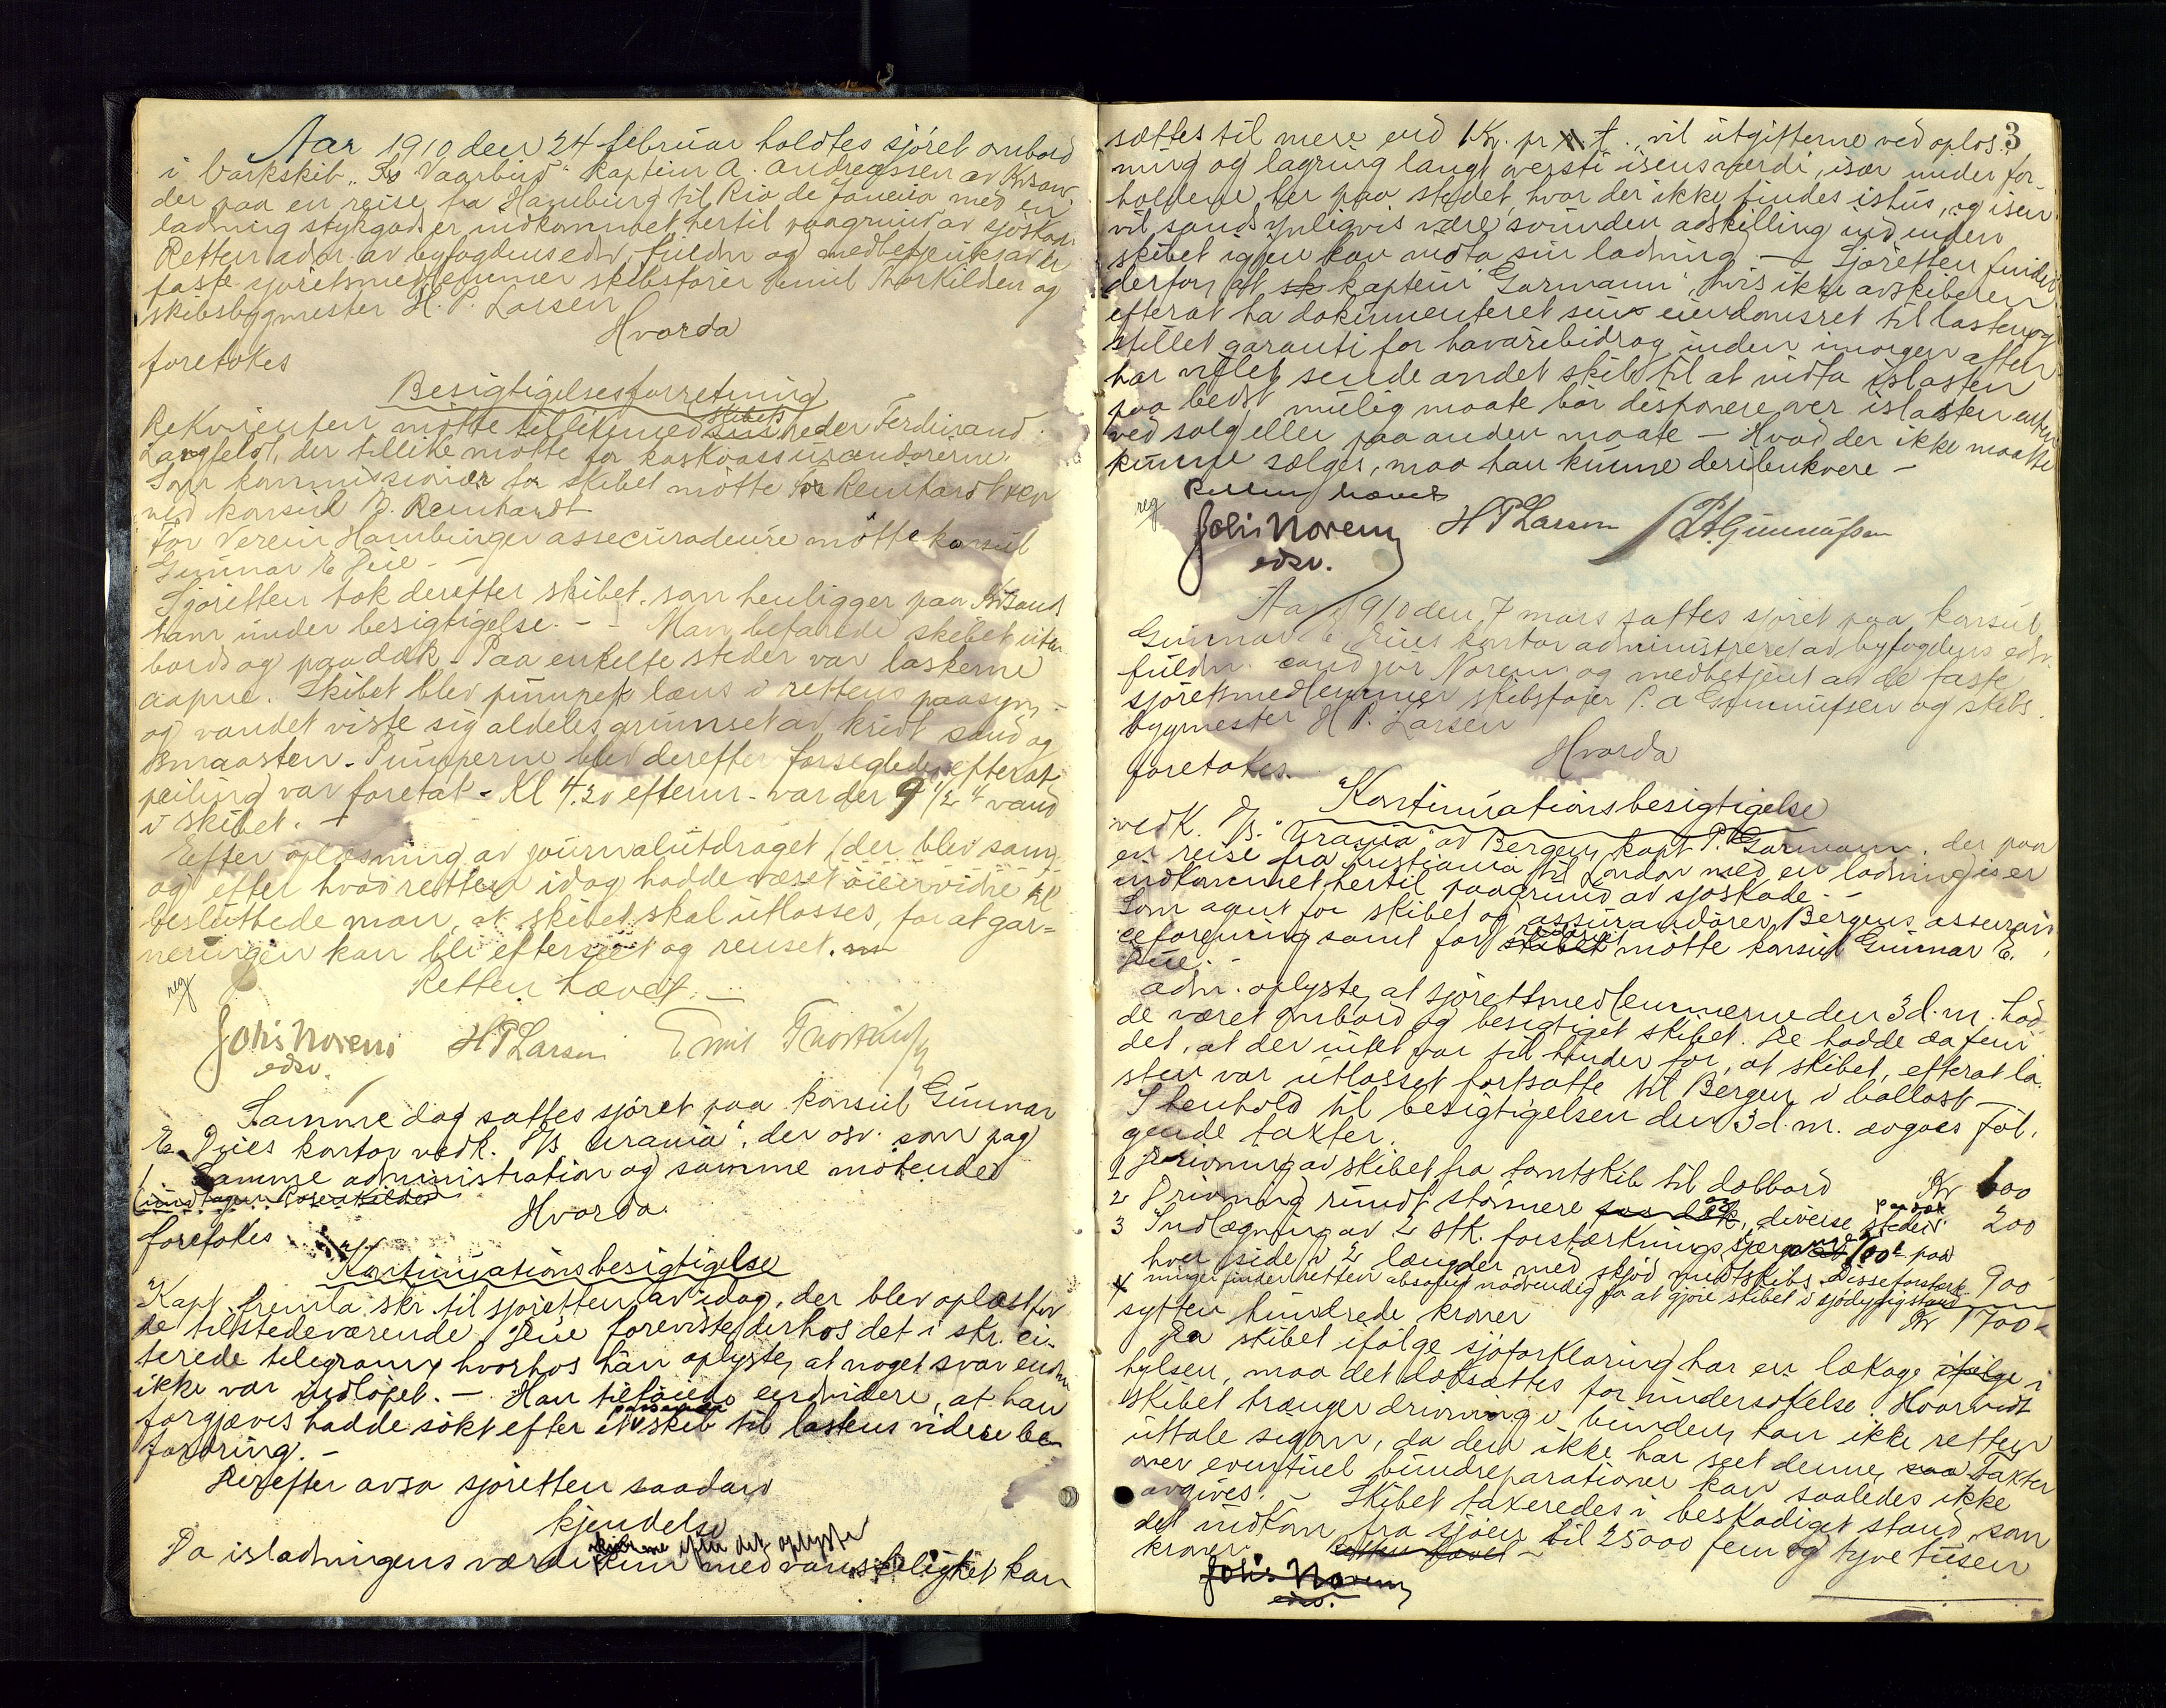 Aar 1910 den 24 februar holdtes sjöret ombord
i barkskib "Vaarbud" kaptein A. Andreassen av Krsand.
der paa en reise fra Hamburg til Rio de Janeiro med en
ladning stykgods er indkommet hertil paagrund av sjöskade.
Retten adm. av byfogdens edsv. fuldm og medbetjent av de
faste sjöretsmedlemmer skibsförer Emil Thorkildsen og
skibsbygmester H. P. Larsen
Hvorda
foretokes
Besigtigelsesforretning
Rekvirenten mötte tillikemed skibets reder Ferdinand
Langfeldt, der tillike mötte for kaskoassurandörerne.
Som kommissionær for skibet mötte Reinhardt & co
ved konsul B. Reinhardt
For Verein Hamburger assecuradeure mötte konsul
Gunnar E Due -
Sjöretten tok derefter skibet, som henligger paa Krsands
havn under besigtigelse. - Man befarede skibet uten
bords og paa dæk - Paa enkelte steder var laskerne
aapne. Skibet blev pumpet læns i rettens paasyn -
og vandet viste sig aldeles grumset av kridt sand og
smaasten - Pumperne blev derefter forseglede, efterat
peiling var foretat - Kl 4.20 efterm. var der 9 1/2" vand
i skibet. -
Efter oplæsning av journalutdraget (der blev saml
og efter hvad retten idag hadde været öienvidne til
besluttede man, at skibet skal utlosses, for at gar=
neringen kan bli efterseet og renset.
Retten hævet. -
reg
Johs Norem HPLarsen Emil Thorkildsen
edsv.
Samme dag sattes sjöret paa konsul Gunnar
E. Dues kontor vedk. S/S "Urania", der osv. som pag
1 Samme administration og samme mötende
(undtagen Thorkildsen
Hvorda
foretokes
Kontinuationsbesigtigelse
Kapt fremla skr. til sjöretten av idag, der blev oplæst for
de tilstedeværende. Due foreviste derhos det i skr. ci-
terede telegram, hvorhos han oplyste, at noget svar endnu
ikke var indlöpet. - Han tilföiede endvidere, at han
forgjæves hadde sökt efter et passende skib til lastens videre be-
fordring. -
Derefter avsa sjöretten saadan
kjendelse
Da isladningens værdi efter det oplyste med vanskelighet kan
3
sættes til mere end 1 Kr. pr t., vil utgifterne ved oplos-
ning og lagring langt overstige isens værdi, især under for-
holdene her paa stedet, hvor der ikke findes ishus, og isen
vil sandsynligvis være svunden adskillig ind inden
skibet igjen kan indta sin ladning. - Sjöretten finder
derfor, at kaptein Garmann, hvis ikke avskiberen
efterat ha dokumenteret sin eiendomsret til lasten og
stillet garanti for havaribidrag inden imorgen aften
har villet sende andet skib til at indta islasten
paa bedst mulig maate bör disponere over islasten enten
ved salg eller paa anden maate - Hvad der ikke maatte
kunne sælges, maa han kunne derelinkvere -
Retten hævet
reg
Johs Norem HPLarsen P.A.Gunnufsen
edsv.
Aar 1910 den 7 mars sattes sjöret paa konsul
Gunnar E Dues kontor administreret av byfogdens edsv.
fuldm. cand jur Norem og medbetjent av de faste
sjöretsmedlemmer skibsförer P. A Gunnufsen og skibs-
bygmester H P. Larsen
Hvorda
foretokes.
Kontinuationsbesigtigelse
vedk. S/S. "Urania" av Bergen, kapt P. Garmann, der paa
en reise fra Kristiania til London med en ladning is er
indkommet hertil paagrund av sjöskade. -
Som agent for skibet og assurandören, Bergens assuran
ceforening samt for rederiet mötte konsul Gunnar E.
Due. -
Adm. oplyste, at sjörettsmedlemmerne den 3 d. m. had-
de været ombord og besigtiget skibet. De hadde da fun
det, at der intet var til hinder for, at skibet, efterat la-
sten var utlosset fortsatte til Bergen i ballast -
I henhold til besigtigelsen den 3 d. m. avgaves föl-
gende takster.
1 Drivning av skibet fra tomtskib til dolbord Kr 600
2 Drivning rundt stönnere paa dæk, diverse steder 200
3 Indlægning av 2 stk. forstærkningsbjerg 100' paa
hver side i 2 længder med skjöd midtskibs. Disse forstærk- 900
ninger finder retten absolut nödvendig for at gjöre skibet i sjödygtig stand
sytten hundrede kroner Kr 1700
Da skibet ifölge sjöforklaring har en lækage i
hylsen, maa det doksættes for undersökelse. Hvorvidt
skibet trænger drivning i bunden, kan ikke retten
uttale sig om, da den ikke har seet denne, Takster
over eventuel bundreparationer kan saaledes ikke
avgives. - Skibet taxeredes i beskadiget stand, som
det indkom fra sjöen til 25000 fem og tyve tusen
kroner. Retten hævet -
Johs Norem
edsv.